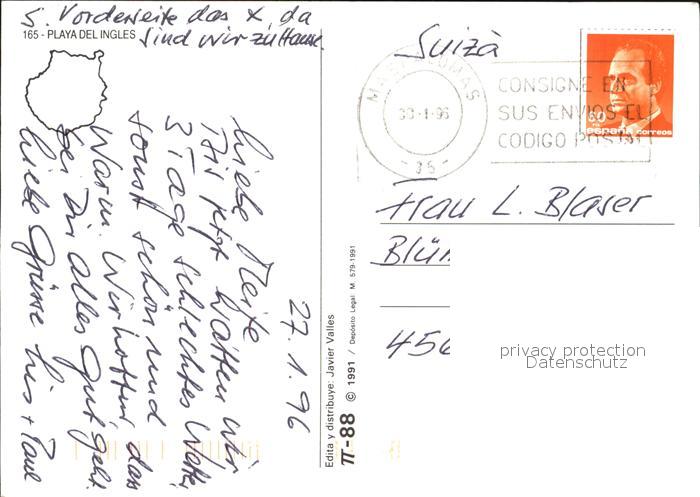 s. Vorderseite das x, da
sind wir zu Hause.
165 - PLAYA DEL INGLES
27.1.96
Liebe
Bis jetzt hatten wir
3 Tage schlechtes Wetter
sonst schön und
Warm. Wir hoffen, das
bei Dir alles gut geht.
Liebe Grüsse Lis + Paul
Edita y distribuye: Javier Valles
π-88 © 1991 / Depósito Legal: M. 579-1991
Suiza
MASPALOMAS
30-1-96
-35-
CONSIGNE EN
SUS ENVIOS EL
CODIGO POSTAL
60
PTA
españa correos
Frau L. Blaser
Blüm
456
privacy protection
Datenschutz